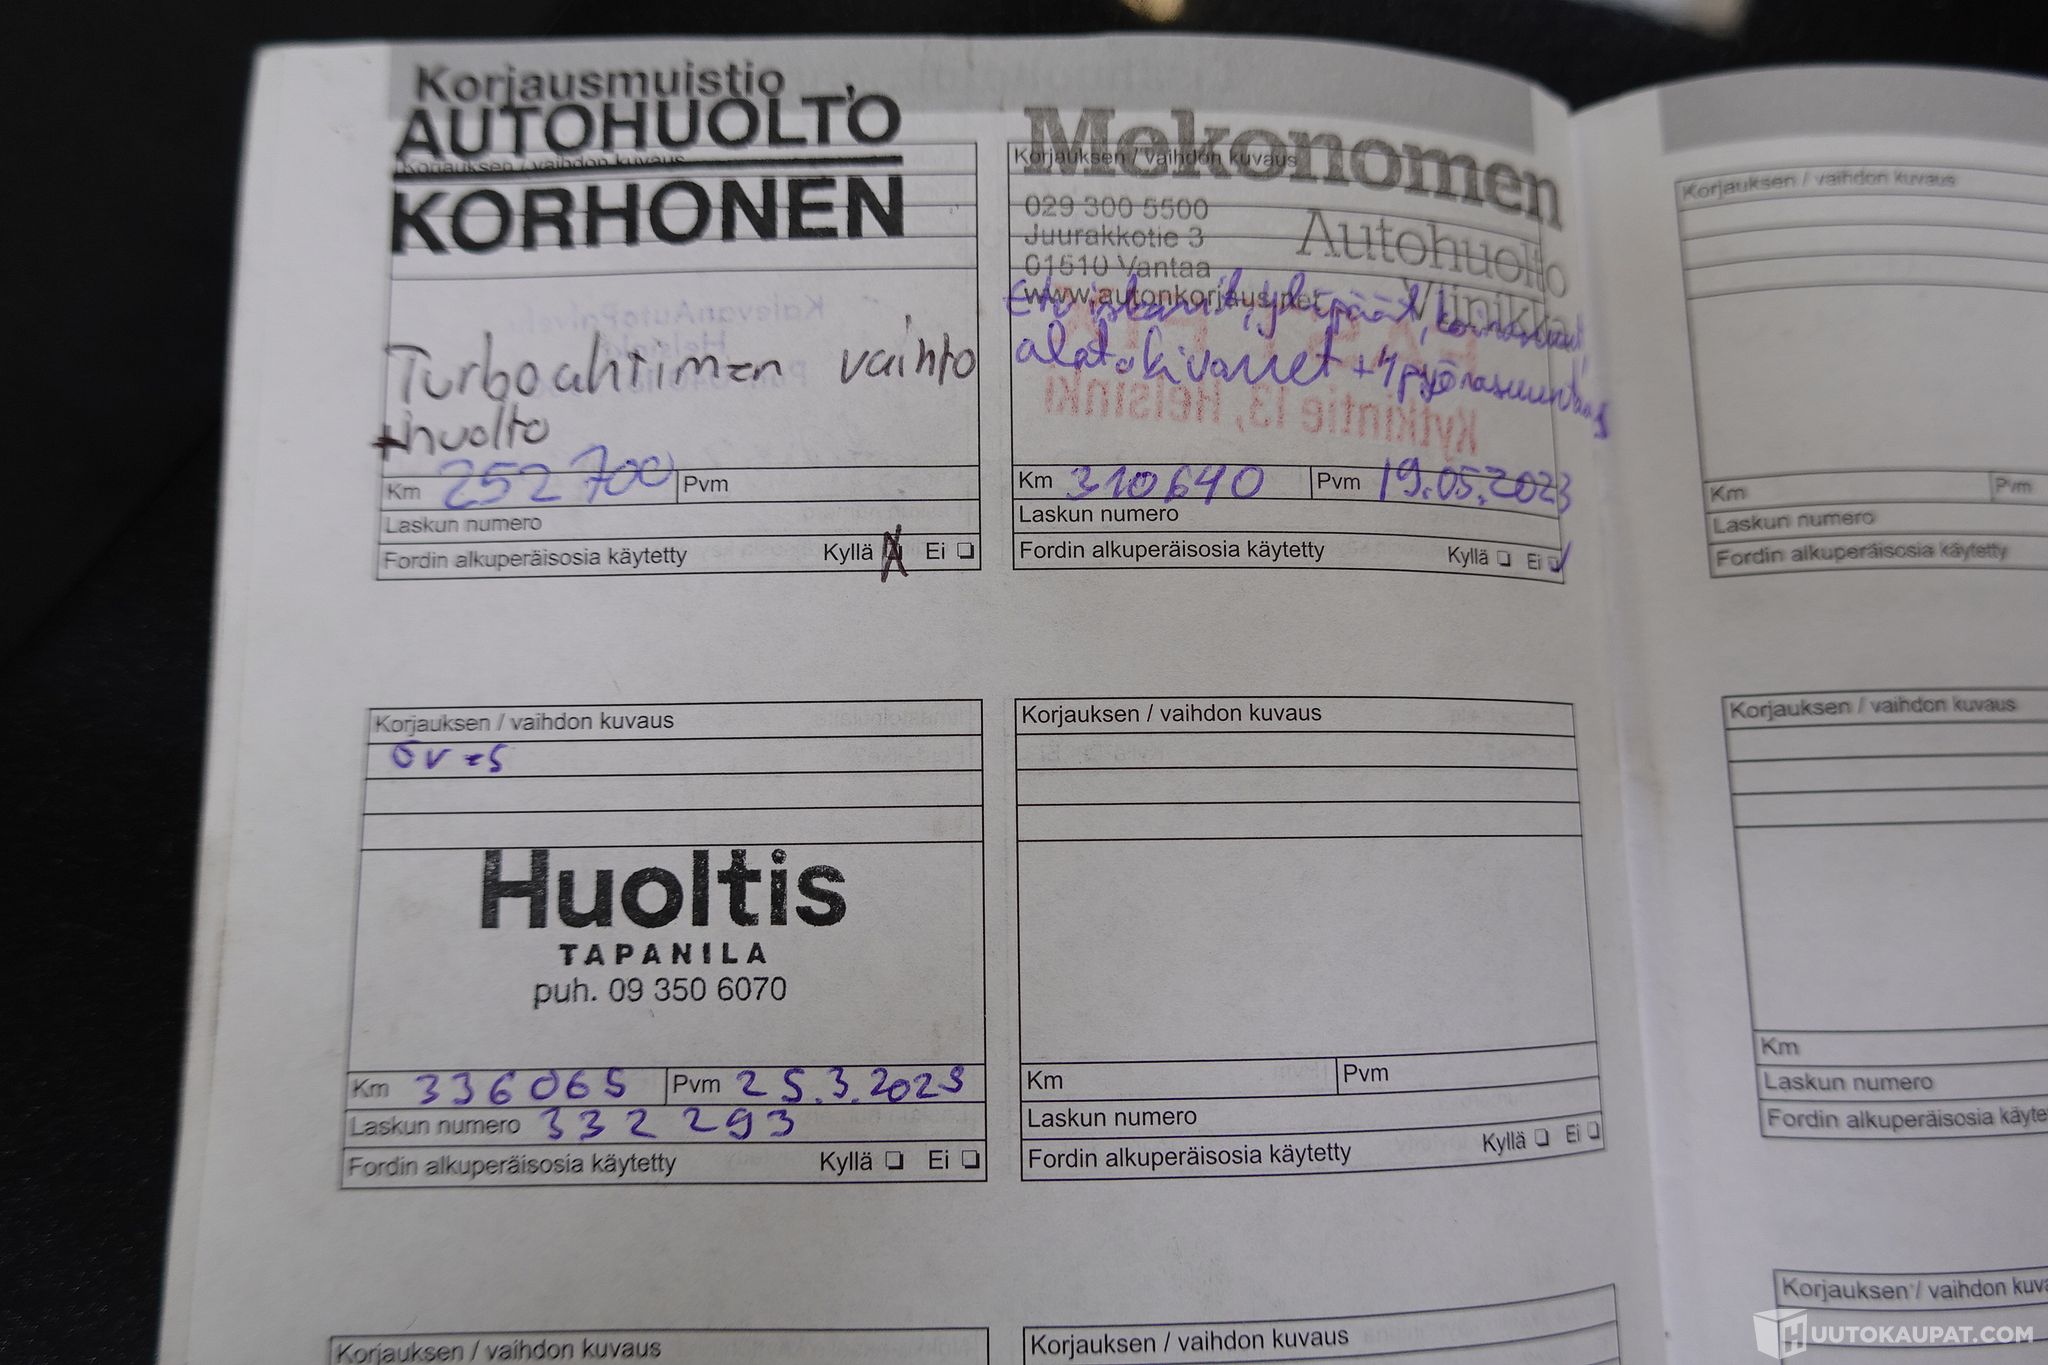 Korjausmuistio
AUTOHUOLTO
Korjauksen / vaihdon kuvaus
KORHONEN
Turboahtimen vaihto
+huolto
Km 252 700 Pvm
Laskun numero
Fordin alkuperäisosia käytetty Kyllä Ei
Mekonomen
Korjauksen / vaihdon kuvaus
029 300 5500
Autohuolto
Juurakkotie 3
01510 Vantaa
www.autonkorjaus.net
Viinikka
alatukivarret + 4pyöräsuuntaus
Kytkintie 13, Helsinki
Km 310640 Pvm 19.05.2023
Laskun numero
Fordin alkuperäisosia käytetty Kyllä Ei
Korjauksen / vaihdon kuvaus
Huoltis
TAPANILA
puh. 09 350 6070
Km 336065 Pvm
Laskun numero 332 293
Fordin alkuperäisosia käytetty Kyllä Ei
Korjauksen / vaihdon kuvaus
Km Pvm
Laskun numero
Fordin alkuperäisosia käytetty Kyllä Ei
Korjauksen / vaihdon kuvaus
Korjauksen / vaihdon kuvaus
Korjauksen / vaihdon kuvaus
Km Pvm
Laskun numero
Fordin alkuperäisosia käytetty
Korjauksen / vaihdon kuvaus
Km
Laskun numero
Fordin alkuperäisosia käyte
Korjauksen / vaihdon kuva
HUUTOKAUPAT.COM